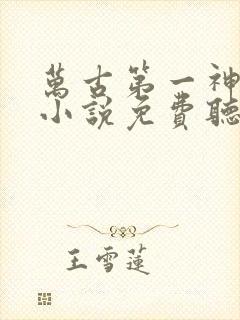 萬古第一神
小說免費聽
王雪蓮